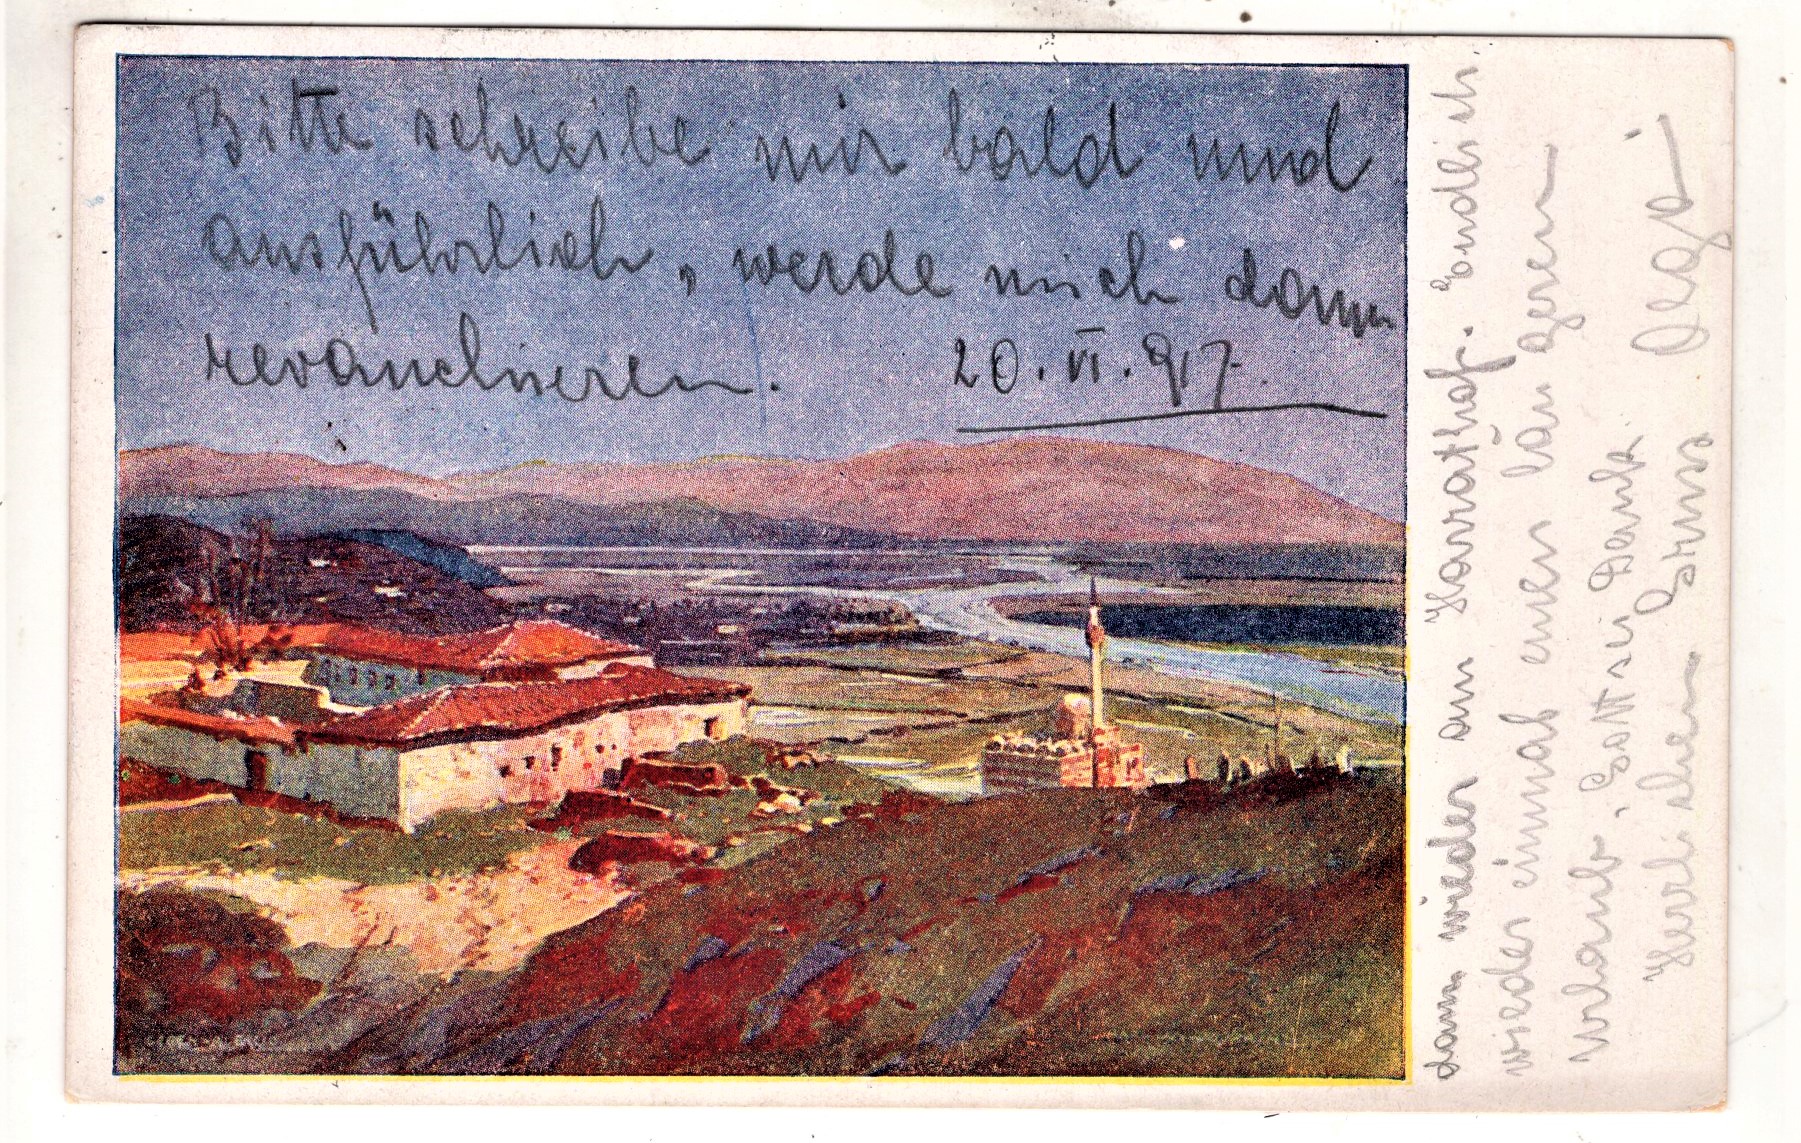 Bitte schreibe mir bald und
ausführlich, werde mich dann
revanchieren. 20. VI. 917.
dann wieder am Konrathof. Endlich
wieder einmal einen längeren
Urlaub, Gott sei Dank.
Herzlichen Gruss